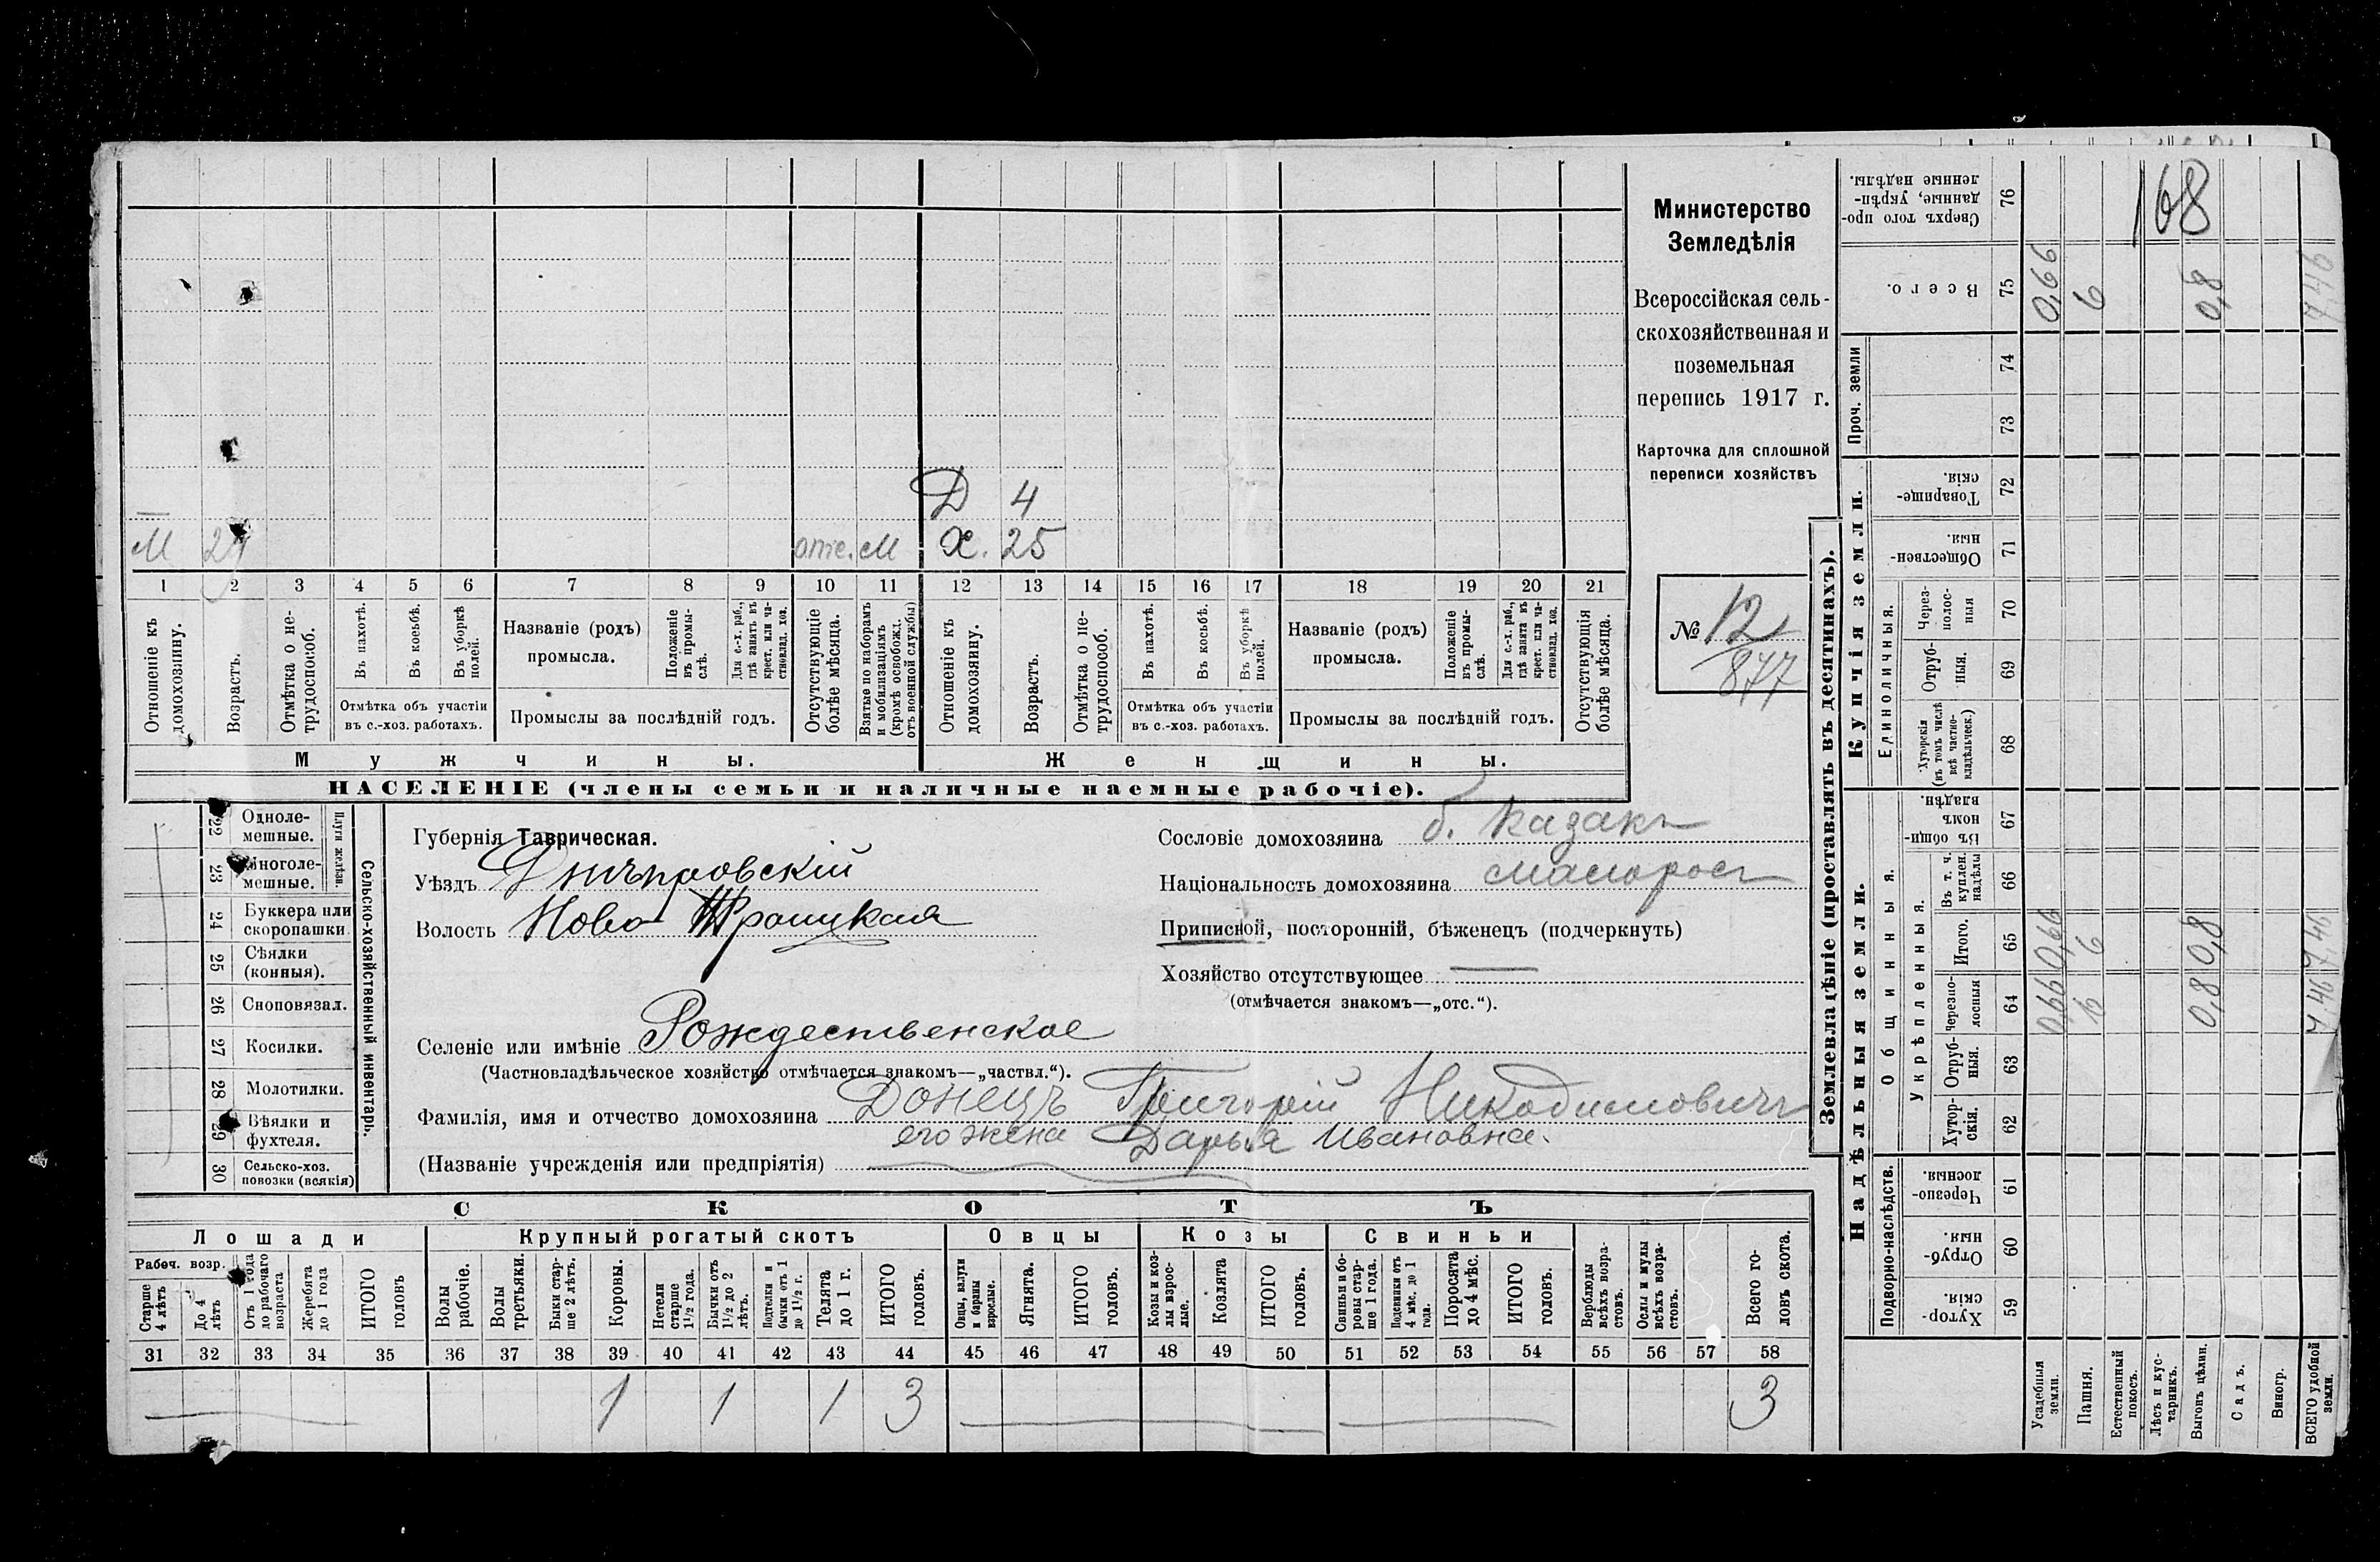 168
Д 4
М отс. М Х. 25
1 2 3 4 5 6 7 8 9 10 11 12 13 14 15 16 17 18 19 20 21
Отношеніе къ домохозяину.
Возрастъ.
Отмѣтка о не-трудоспособ.
Въ пахотѣ.
Въ косьбѣ.
Въ уборкѣ полей.
Отмѣтка объ участіи
въ с.-хоз. работахъ.
Названіе (родъ)
промысла.
Положеніе въ промы-слѣ.
Для с.-х. раб., гдѣ занятъ въ крест. или ча-стновлад. хоз.
Промыслы за послѣдній годъ.
Отсутствующіе болѣе мѣсяца.
Взятые по наборамъ и мобилизаціямъ (кромѣ освобожд. отъ военной службы)
Отношеніе къ домохозяину.
Возрастъ.
Отмѣтка о не-трудоспособ.
Въ пахотѣ.
Въ косьбѣ.
Въ уборкѣ полей.
Отмѣтка объ участіи
въ с.-хоз. работахъ.
Названіе (родъ)
промысла.
Положеніе въ промы-слѣ.
Для с.-х. раб., гдѣ занята въ крест. или ча-стновлад. хоз.
Промыслы за послѣдній годъ.
Отсутствующія болѣе мѣсяца.
Мужчины. Женщины.
НАСЕЛЕНІЕ (члены семьи и наличные наемные рабочіе).
Министерство
Земледѣлія
Всероссійская сель-
скохозяйственная и
поземельная
перепись 1917 г.
Карточка для сплошной
переписи хозяйствъ
№ 12
877
Сельско-хозяйственный инвентарь.
Плуги желѣзн.
22 Однол­е-
мешные.
23 Многоле-
мешные.
24 Буккера или
скоропашки.
25 Сѣялки
(конныя).
26 Сноповязал.
27 Косилки.
28 Молотилки.
29 Вѣялки и
фухтеля.
30 Сельско-хоз.
повозки (всякія)
Губернія Таврическая.
Уѣздъ Днѣпровскій
Волость Ново Троицкая
Селеніе или имѣніе Рождественское
(Частновладѣльческое хозяйство отмѣчается знакомъ—„частвл.“).
Сословіе домохозяина б. казакъ
Національность домохозяина малоросъ
Приписной, посторонній, бѣженецъ (подчеркнуть)
Хозяйство отсутствующее —
(отмѣчается знакомъ—„отс.“).
Фамилія, имя и отчество домохозяина Донецъ Григорій Никодимовичъ
его жена Дарья Ивановна.
(Названіе учрежденія или предпріятія)
СКОТЪ
Лошади Крупный рогатый скотъ Овцы Козы Свиньи
Рабоч. возр.
Старше 4 лѣтъ
До 4 лѣтъ
Отъ 1 года до рабочаго возраста
Жеребята до 1 года
ИТОГО головъ
Волы рабочіе.
Волы третьяки.
Быки стар-ше 2 лѣтъ.
Коровы.
Нетели старше 1½ года.
Бычки отъ 1½ до 2 лѣтъ.
Подтелки и бычки отъ 1 до 1½ г.
Телята до 1 г.
ИТОГО головъ.
Овцы, валухи и бараны взрослые.
Ягнята.
ИТОГО головъ.
Козы и коз-лы взрос-лые.
Козлята
ИТОГО головъ.
Свиньи и бо-ровы стар-ше 1 года.
Подсвинки отъ 4 мѣс. до 1 года.
Поросята до 4 мѣс.
ИТОГО головъ.
Верблюды всѣхъ возра-стовъ.
Ослы и мулы всѣхъ возра-стовъ.
Всего го-ловъ скота.
31 32 33 34 35 36 37 38 39 40 41 42 43 44 45 46 47 48 49 50 51 52 53 54 55 56 57 58
1 1 1 3 3
Землевладѣніе (проставлять въ десятинахъ).
Надѣльныя земли. Купчія земли. Проч. земли
Подворно-наслѣдств. Общинныя. Укрѣпленныя. Единоличныя.
59 Хутор-скія.
60 Отруб-ныя.
61 Черезпо-лосныя.
62 Хутор-скія.
63 Отруб-ныя.
64 Черезпо-лосныя
65 Итого.
66 Въ т. ч. куплен. надѣлы
67 Въ общи-номъ владѣн.
68 Хуторскія (въ томъ числѣ всѣ частно-владѣльческ.)
69 Отруб-ныя.
70 Через-полос-ныя
71 Обществен-ныя.
72 Товарище-скія.
73
74
75 Всего.
76 Сверхъ того про-данные, укрѣп-ленные надѣлы.
Усадебныя земли. 0,66 0,66 0,66
Пашня. 6 6 6
Естественный покосъ.
Лѣсъ и кус-тарникъ.
Выгонъ цѣлин. 0,8 0,8 0,8
Садъ.
Виногр.
ВСЕГО удобной земли. 7,46 7,46 7,46